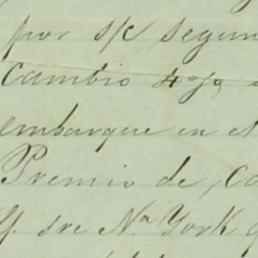 por s/c segun
Cambio 4%
embarque en el
Premio de Co
ff. sre N.a York